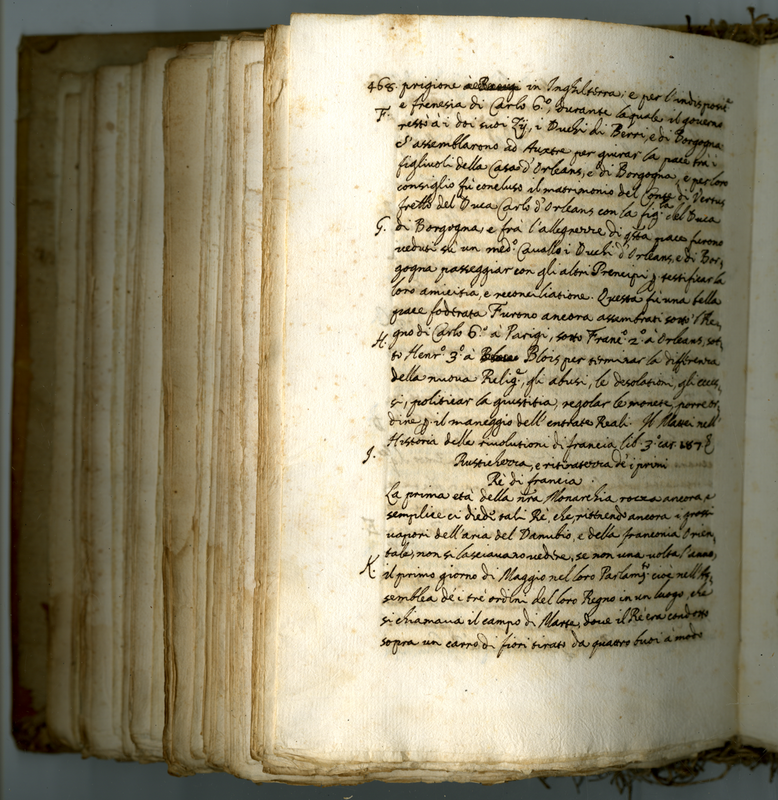 468. prigione à Parigi in Inghilterra; e per l'indisposit.ⁿᵉ
F. e frenesia di Carlo 6.º, durante la quale il governo
restò à i doi suoi Zij, i Duchi di Berri, e di Borgogna
S'assemblarono ad Auxtre per giurar la pace trà i
figliuoli della Casa d'Orleans, e di Borgogna, e per loro
consiglio fù concluso il matrimonio del Conte di Vertus
frello del Duca Carlo d'Orleans con la fig.ˡᵃ del Duca
G. di Borgogna, e frà l'allegrezze di q̃sta pace furono
veduti sù un med.º Cavallo i Duchi d'Orleans, e di Bor,
gogna passeggiar con gli altri Prencipi p̱ testificar la
loro amicitia, e reconciliatione. Questa fù una bella
pace fodrata. Furono ancora assembrati sotto 'l Re,
gno di Carlo 6.º à Parigi, sotto Franc.º 2.º à Orleans, sot,
H. to Henr.º 3.º à Blois Blois, per terminar la differenza
della nuova Relig.ᵉ, gli abusi, le desolationi, gli eces,
si, politicar la giustitia, regolar le monete, porre or,
dine p̱ il maneggio dell'entrate Reali. Il Mattei nell'
Historia della rivolutioni di francia lib. 3.º car. 187
J. Rustichezza, e ritiratezza de i primi
Rè di francia.
La prima età della n̄ra Monarchia rozza ancora, e
semplice ci diede tali Rè, che, rittnendo ancora i grossi
vapori dell'aria del Danubio, e della franconia Orien,
tale, non si lasciavano vedere, se non una volta l'anno,
K. il primo giorno di Maggio nel loro Parlam.ᵗᵒ cioè nell'As,
semblea de i trè ordini del loro Regno in un luogo, che
si chiamava il campo di Marte, dove il Rè era condotto
sopra un carro di fiori tirato da quattro buoi à modo